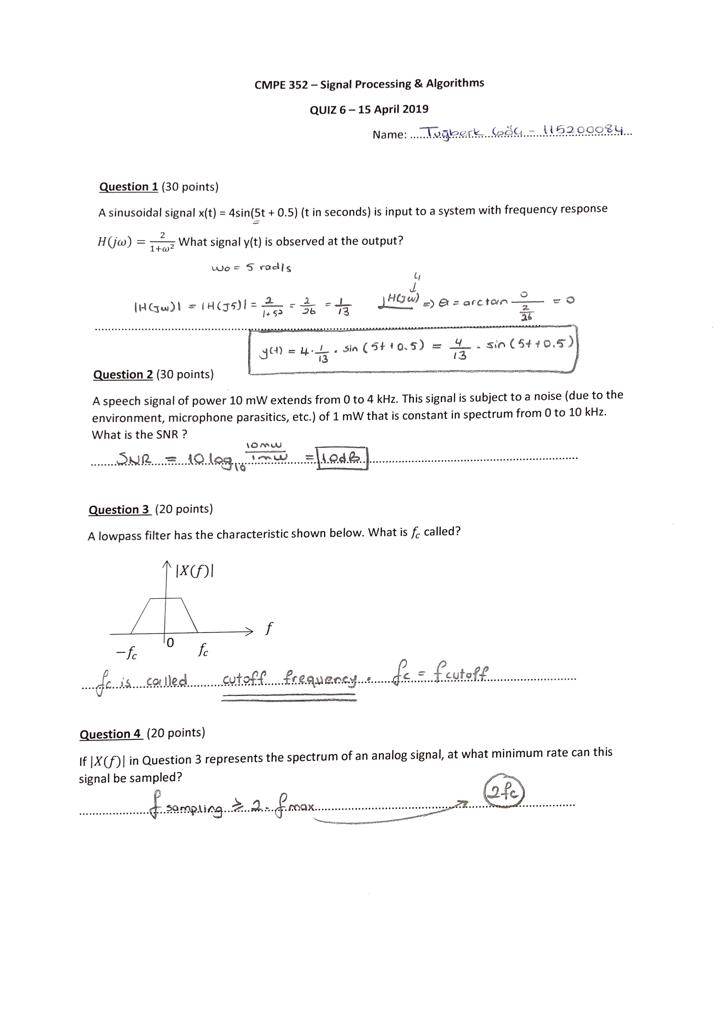 CMPE 352 – Signal Processing & Algorithms
QUIZ 6 – 15 April 2019
Name: ..... Tuğberk ..... - 115200084 ...
Question 1 (30 points)
A sinusoidal signal x(t) = 4sin(5t + 0.5) (t in seconds) is input to a system with frequency response
H(jω) = 2/(1+ω²) What signal y(t) is observed at the output?
ω0 = 5 rad/s
|H(jω)| = |H(j5)| = 2/(1+5²) = 2/26 = 1/13 ∠H(jω) => θ = arctan 0/(2/26) = 0
y(t) = 4 · 1/13 · sin(5t+0.5) = 4/13 · sin(5t+0.5)
Question 2 (30 points)
A speech signal of power 10 mW extends from 0 to 4 kHz. This signal is subject to a noise (due to the
environment, microphone parasitics, etc.) of 1 mW that is constant in spectrum from 0 to 10 kHz.
What is the SNR ?
SNR = 10 log10 10mW/1mW = 10dB
Question 3 (20 points)
A lowpass filter has the characteristic shown below. What is fc called?
|X(f)|
f
−fc 0 fc
fc is called cutoff frequency. fc = fcutoff
Question 4 (20 points)
If |X(f)| in Question 3 represents the spectrum of an analog signal, at what minimum rate can this
signal be sampled?
f sampling ≥ 2. fmax 2fc